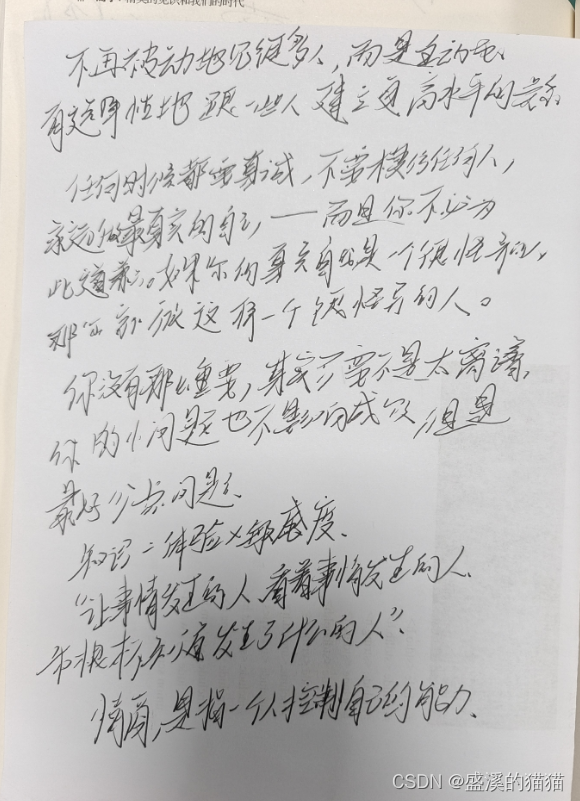 不再被动地见很多人，而是主动地、
有选择性地跟一些人建立更高水平的关系
任何时候都要真诚，不要模仿任何人，
永远做最真实的自己——而且你不必为
此道歉。如果你的真实自我是一个很怪异的人，
那你就做这样一个很怪异的人。
你没有那么重要，其实只要不是太离谱，
你的小问题也不影响成败，但是
最好少点问题。
知识=体验×敏感度、
“让事情发生的人、看着事情发生的人、
和根本不知道发生了什么的人”、
情商，是指一个人控制自己的能力、
CSDN @盛溪的猫猫